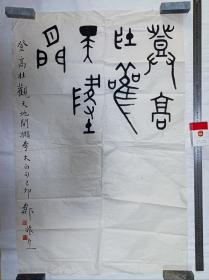 登高
壯觀
天地
間
登高壯觀天地間擷李太白句己卯